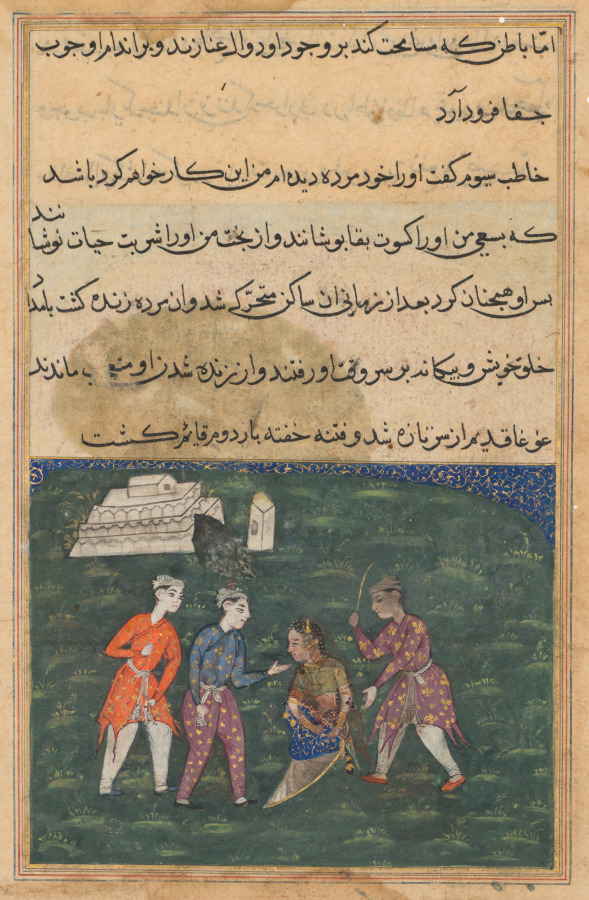 اما باطن که مسامحت کند بر وجود او دوال عنا زند و بر اندام او چوب
جفا فرود آرد
خاطب سیوم گفت او را خود مرده دیده ام من این کار خواهم کرد باشد
که بسعی من او را کسوت بقا پوشانند و از من او را شربت حیات نوشانند
پس او همچنان کرد بعد از زمانی ان ساکن متحرک شد و ان مرده زنده کشت بامداد
خلق خویش و بیکانه بر سر وقت او رفتند و از زنده شدن او ماندند
غوغا قدیم از سر تازه شد و فتنه خفته بار دوم قایم کشت